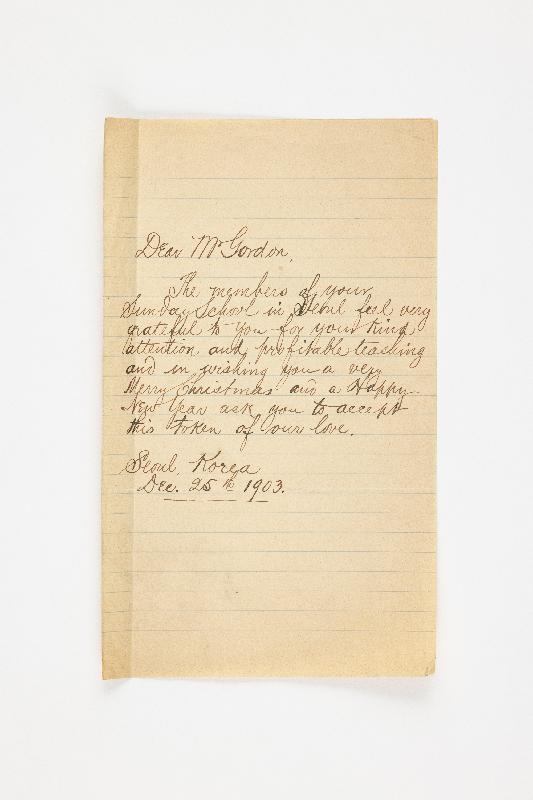 Dear Mr Gordon,
The members of your
Sunday School in Seoul feel very
grateful to you for your kind
attention and profitable teaching
and in wishing you a very
Merry Christmas and a Happy
New Year ask you to accept
this token of our love.
Seoul, Korea
Dec. 25th 1903.